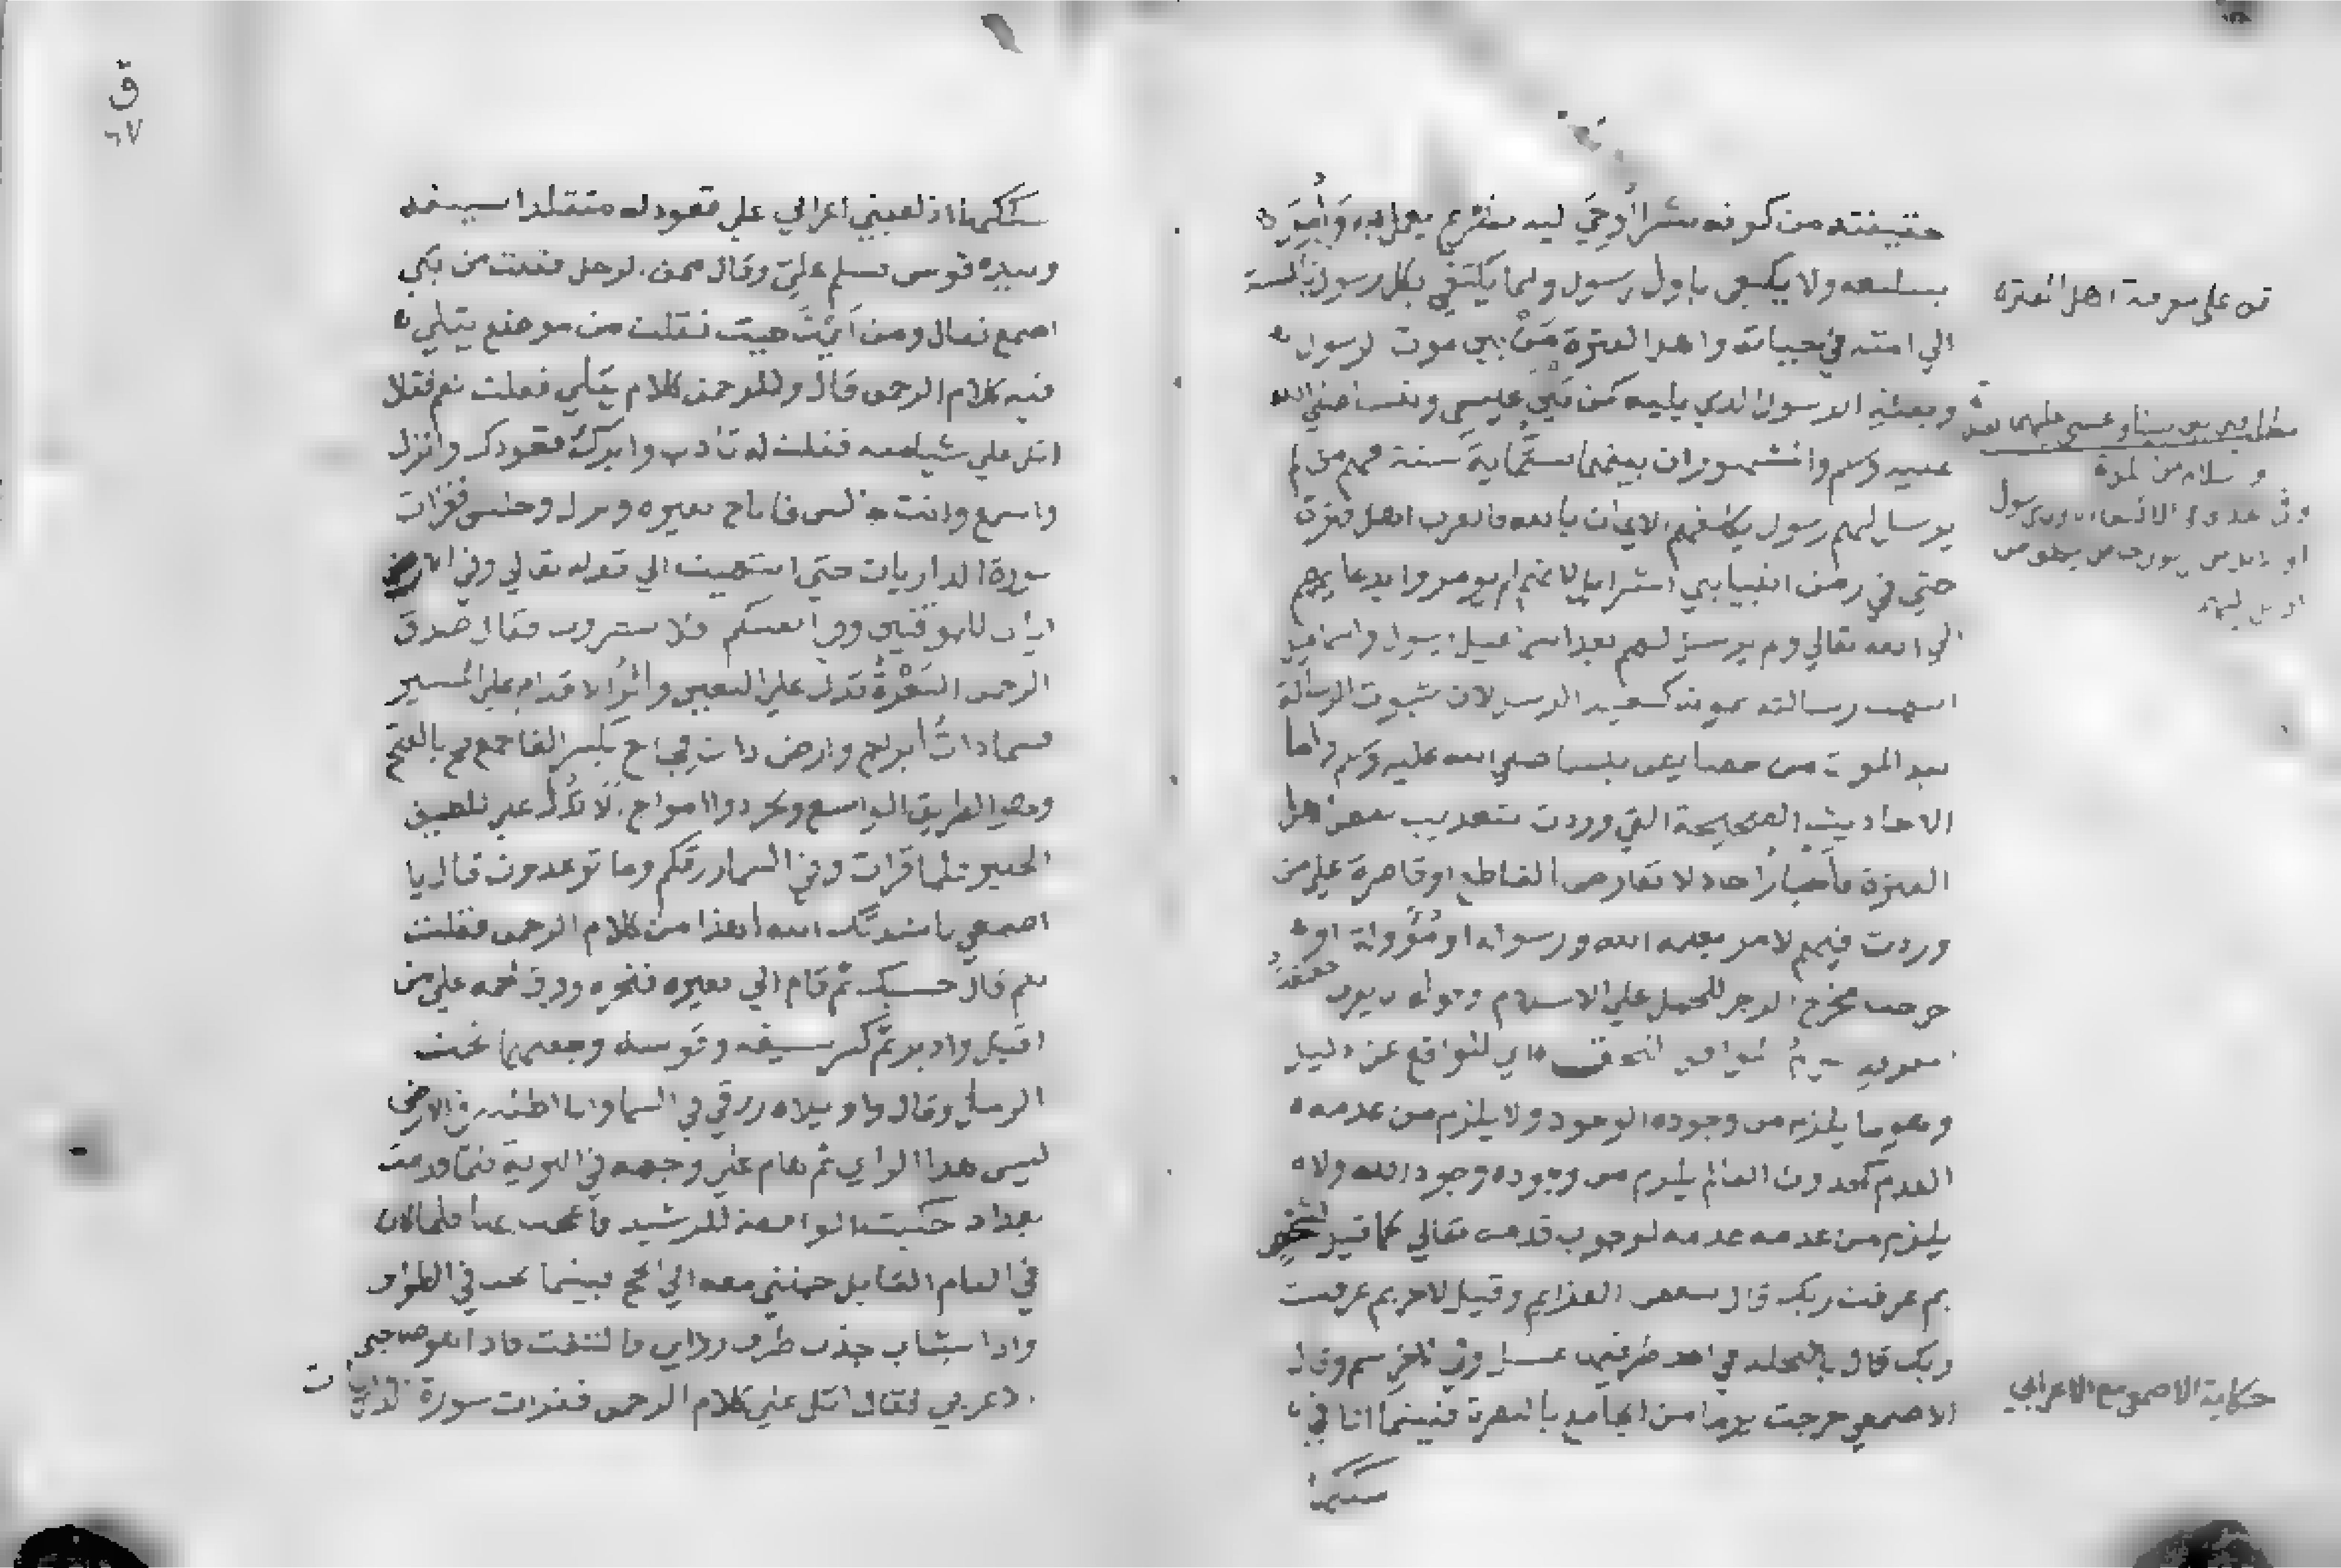 حقيقته من كونه بشرا أوحي اليه بشرع يعمل به وأمر
بتبليغه ولا يكتفى باول رسول وانما يكتفي بكل رسول بالنسبة
الي امته في حياته واهل الفترة من بين موت الرسول
وبعثة الرسول الذي يليه كمن بين عيسى ونبينا صلي الله
عليه وسلم والمشهور ان بينهما ستماية سنة فهم من لم
يرسل اليهم رسول يكلفهم الايمان بالله فالعرب اهل فترة
حتي في زمن انبيا بني اسرائيل لانهم لم يومروا بدعايهم
الي الله تعالي ولم يرسل لهم بعد اسماعيل رسول واسماعيل
انتهت رسالته بموته كبقية الرسل لان ثبوت الرسالة
بعد الموت من خصايص نبينا صلي الله عليه وسلم واما
الاحاديث الصحيحة التي وردت بتعذيب بعض اهل
الفترة فأخبار احاد لا تعارض القاطع او قاصرة علي من
وردت فيهم لامر يعلمه الله ورسوله او مؤولة او
خرجت مخرج الزجر للحمل علي الاسلام وقوله
وهو ما يلزم من وجوده الوجود ولا يلزم من عدمه
العدم كحدوث العالم يلزم من وجوده وجود الله ولا
يلزم من عدمه عدمه لوجوب قدمه تعالي كما قيل
بم عرفت ربك قال بنقض العزايم وقيل لاخر بم عرفت
ربك قال بالنحلة في احد طرفيها عسل وفي الاخر سم وقال
الاصمعي خرجت يوما من الجامع بالبصرة فبينما انا في
سككها
قف على معرفة اهل الفترة
حكاية الاصمعي مع الاعرابي
ق
٦٧
سككها اذ لقيني اعرابي علي قعود له متقلدا سيفه
وبيده قوس فسلم علي وقال ممن الرجل فقلت من بني
اصمع فقال ومن أين جيت فقلت من موضع يتلي
فيه كلام الرحمن قال وللرحمن كلام يتلي فقلت نعم فقال
اتل علي شيا منه فقلت له تأدب وابرك قعودك وانزل
واسمع وانت جالس فاناخ بعيره ونزل وجلس فقرات
سورة الذاريات حتي انتهيت الي قوله تعالي وفي الارض
ايات للموقنين وفي انفسكم افلا تبصرون فقال صدق
الرحمن البعرة تدل علي البعير وأثر الاقدام علي المسير
فسما ذات أبراج وارض ذات فجاج بكسر الفا جمع فج بالفتح
وهو الطريق الواسع وبحر ذو امواج الا تدل علي اللطيف
الخبير فلما قرات وفي السما رزقكم وما توعدون قال يا
اصمعي ناشدتك الله أهذا من كلام الرحمن فقلت
نعم قال حسبك ثم قام الي بعيره فنحره وفرق لحمه علي من
اقبل وادبر ثم كسر سيفه وقوسه وجعلهما تحت
الرمل وقال واويلاه رزقي في السما وانا اطلبه في الارض
ليس هذا الراي ثم هام علي وجهه في البرية فلما قدمت
بغداد حكيت الواقعة للرشيد فاعجب بها فلما كان
في العام القابل حملني معه الي الحج فبينما نحن في الطواف
واذا بشاب جذب طرف رداي فالتفت فاذا هو صاحبي
الاعرابي فقال اتل علي كلام الرحمن فقرات سورة الذاريات